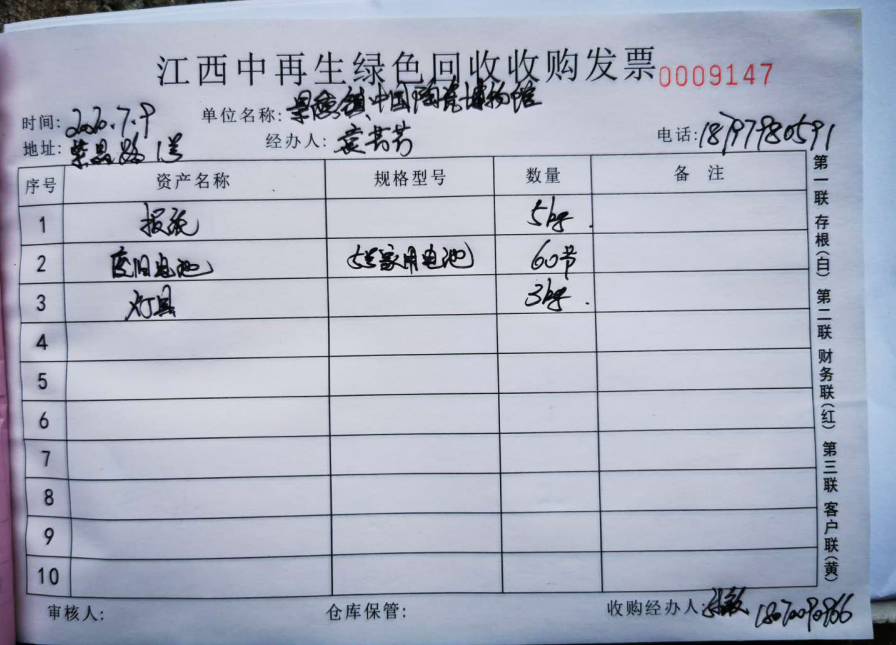 江西中再生绿色回收收购发票 0009147
时间: 2020.7.9 单位名称: 景德镇中国陶瓷博物馆
地址: 紫晶路1号 经办人: 袁芳芳 电话: 18797980591
序号 资产名称 规格型号 数量 备 注
1 报纸 5kg.
2 废旧电池 5号家用电池 60节
3 灯具 3kg.
4
5
6
7
8
9
10
审核人: 仓库保管: 收购经办人:
第一联 存根(白) 第二联 财务联(红) 第三联 客户联(黄)